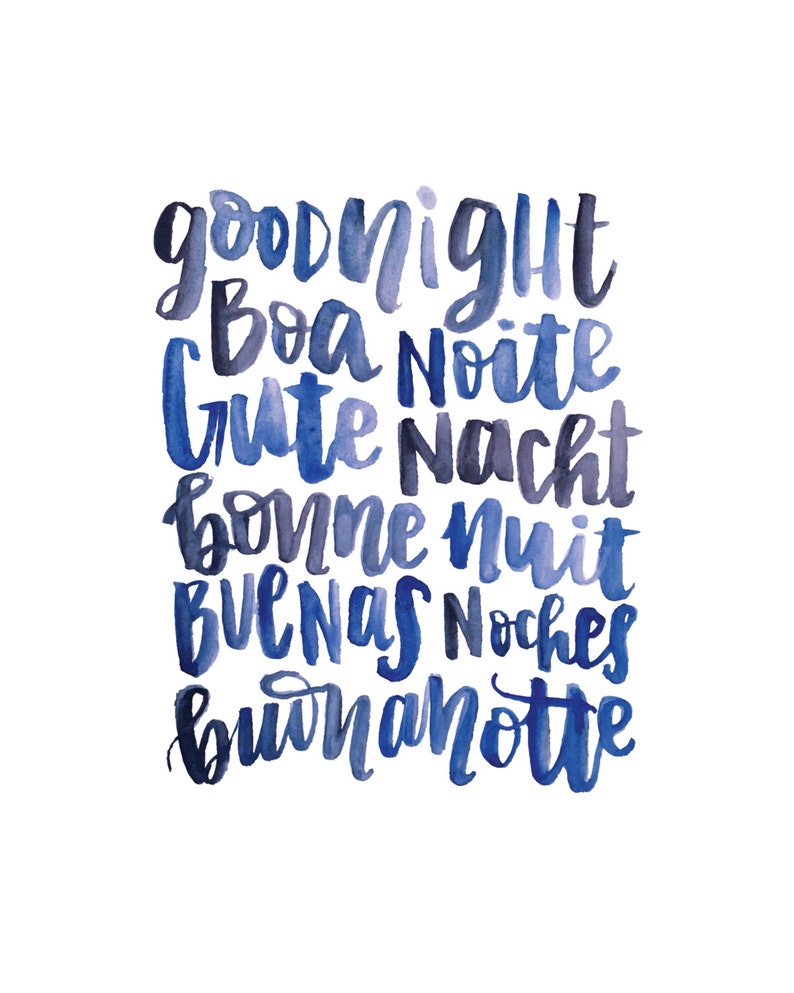 goodnight
Boa Noite
Gute Nacht
bonne nuit
Buenas Noches
buonanotte